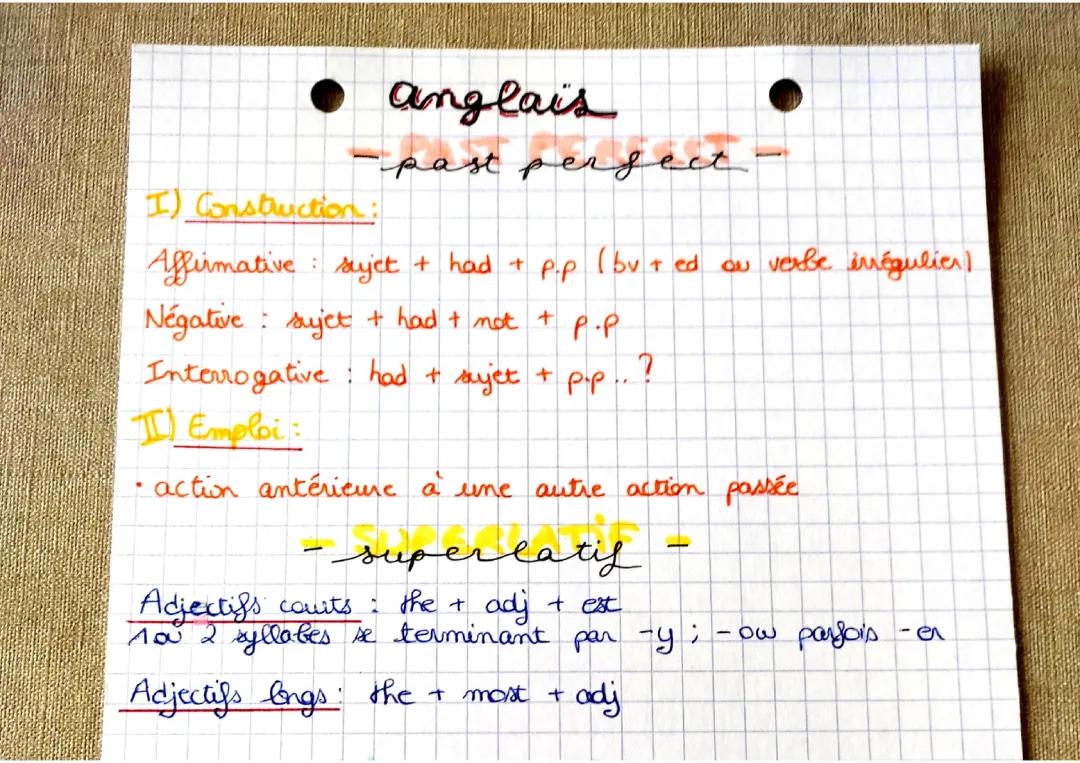 anglais
- PAST PERFECT -
- past perfect -
I) Construction :
Affirmative : sujet + had + p.p (bv + ed ou verbe irrégulier)
Négative : sujet + had + not + p.p
Interrogative : had + sujet + p.p .. ?
II) Emploi :
• action antérieure à une autre action passée
- SUPERLATIF -
- superlatif -
Adjectifs courts : the + adj + est
1 ou 2 syllabes se terminant par -y ; -ow parfois -er
Adjectifs longs : the + most + adj